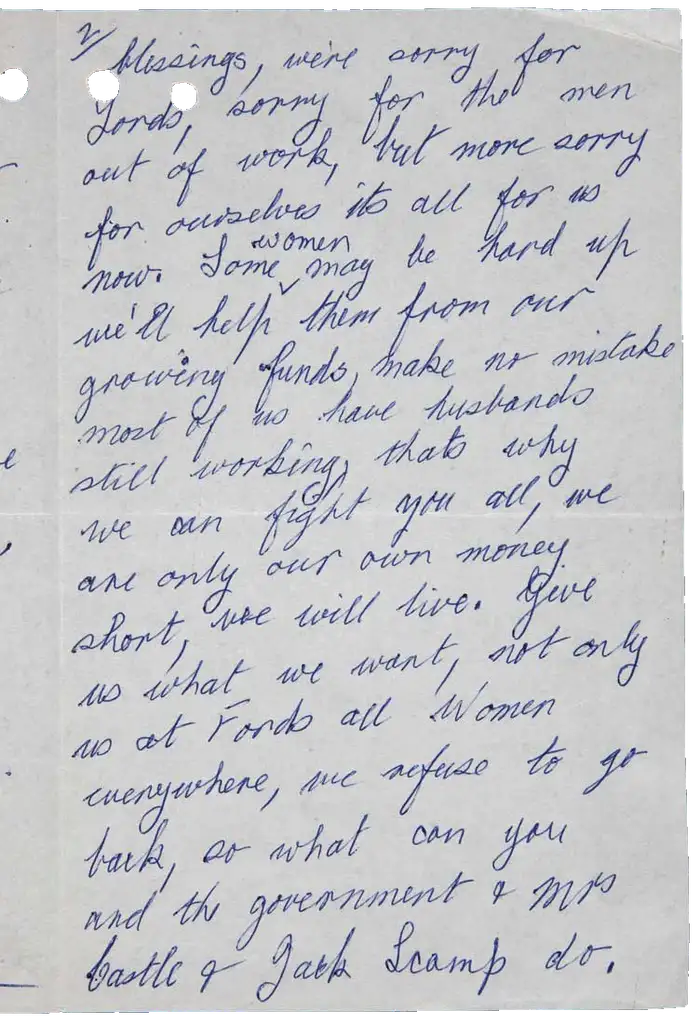 2/
blessings, we're sorry for
Fords, sorry for the men
out of work, but more sorry
for ourselves its all for us
now. Some women may be hard up
we'll help them from our
growing funds, make no mistake
most of us have husbands
still working, thats why
we can fight you all, we
are only our own money
short, we will live. Give
us what we want, not only
us at Fords all Women
everywhere, we refuse to go
back, so what can you
and the government & Mrs
Castle & Jack Scamp do.